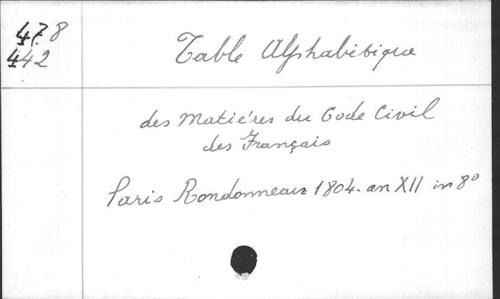 47.8
442
Table Alphabétique
des Matières du Code Civil
des Français
Paris Rondonneau 1804. an XII in 8°